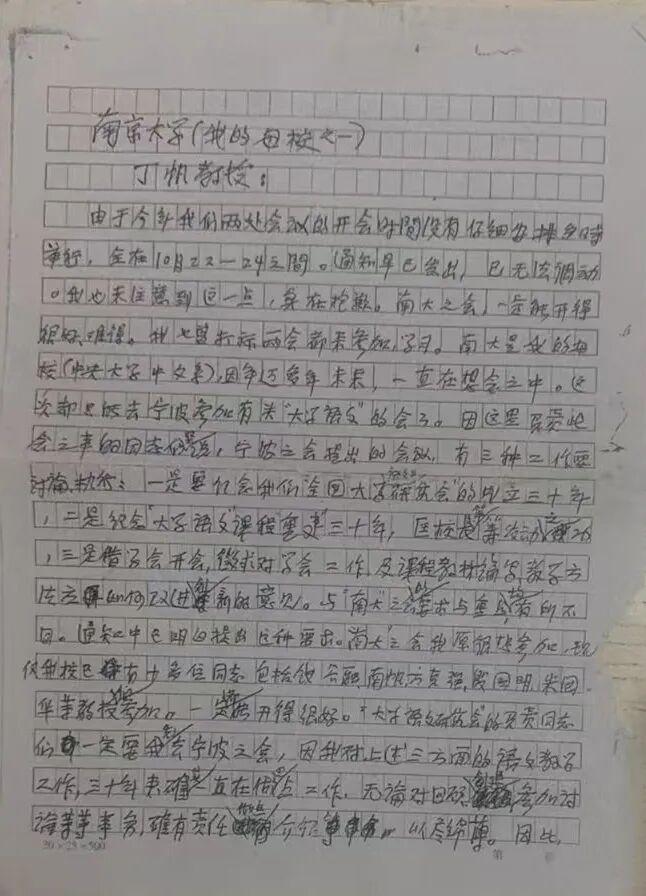 南京大学(我的母校之一)
丁帆教授:
由于今年我们两处会议的开会时间没有仔细安排定时
举行,全在10月22—24之间。通知早已发出,已无法调动
。我也未注意到这一点,实在抱歉。南大之会,一定能开得
很好,难得。我也曾打标两会都来参加学习。南大是我的母
校(中央大学中文系),因年迈多年未来,一直在想念之中。这
次却只能去宁波参加有关"大学语文"的会了。因这里负责此
会之事的同志们,宁波之会提出的会议,有三种工作要
讨论、执行:一是要纪念我们全国"大学研究会"的成立三十年
,二是纪念"大学语文"课程重建三十年,匡校长等
,三是借学会开会,征求对学会工作及课程教材编写教学方
法应如何改进新的意见。与"南大"之会要求与重点有所不
同。通知中已明白提出这种要求。"南大"之会我原很想参加,现
我校已有十多位同志包括钱谷融南帆方克强殷国明朱国
华等教授参加。一定能开得很好。"大学语文研究会"的负责同志
们一定要我去宁波之会,因我对上述三方面的语文教学
工作,三十年来确一直在做点工作,无论对回顾参加讨
论等等事务,确有责任介绍,以尽绵薄。因此,
20×25=500
第